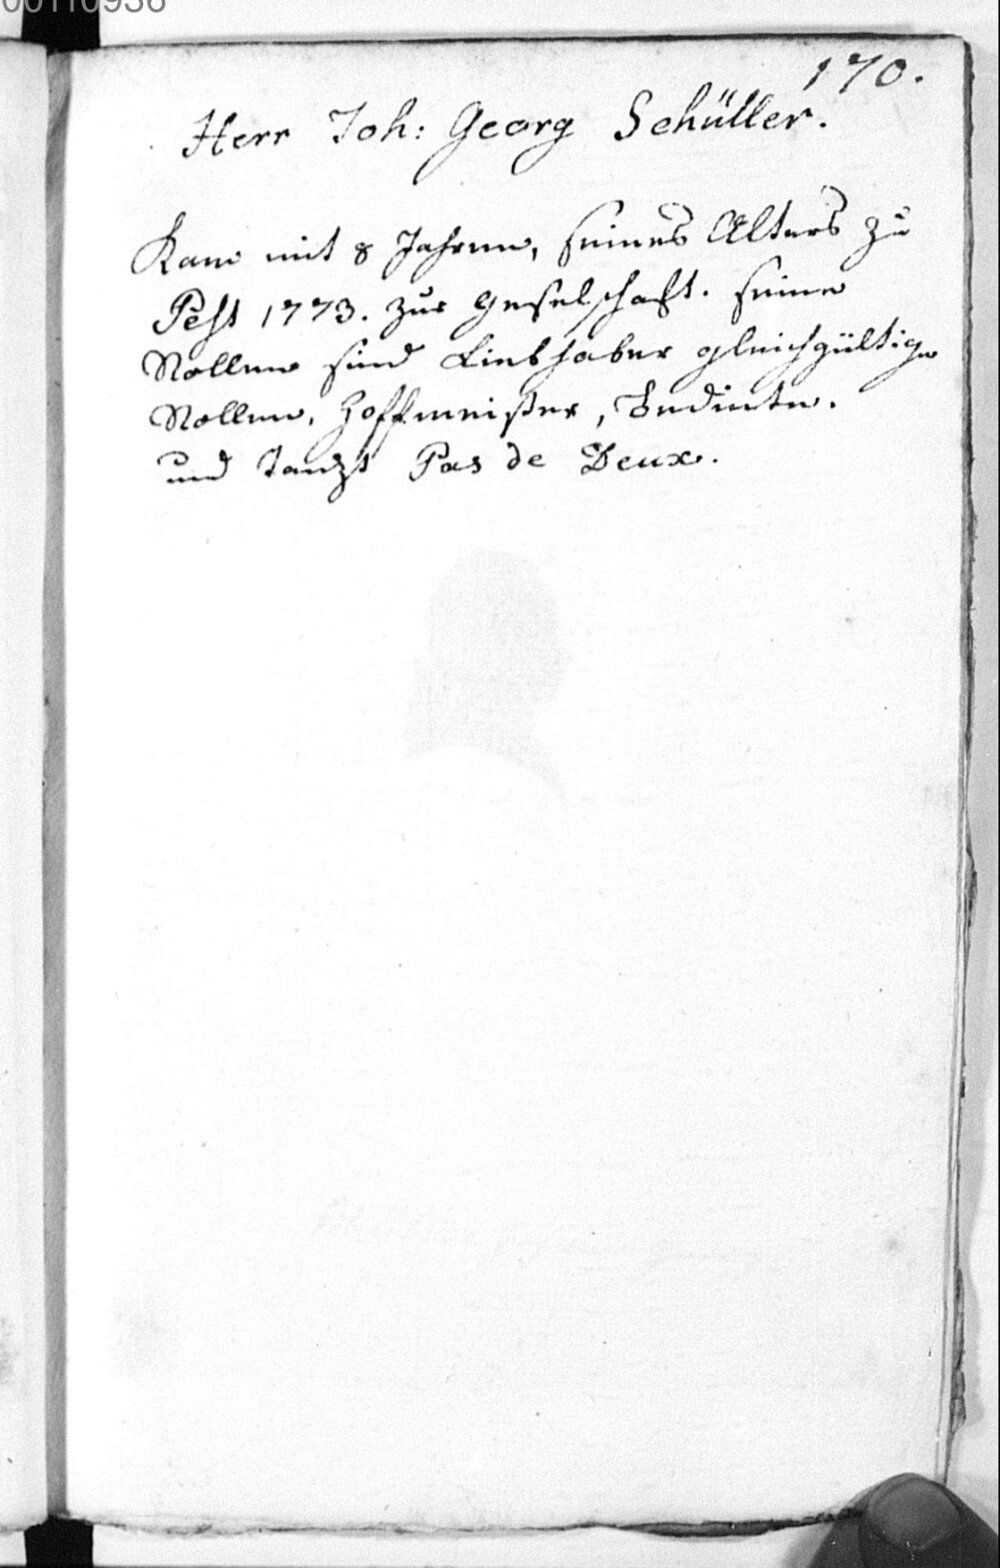 00110936
170.
Herr Joh: Georg Schüller.
Kam mit 8 Jahren, seines Alters zu
Pest 1773. zur Geselschaft. seine
Rollen sind Liebhaber gleichgültige
Rollen, Hoffmeister, Bediente.
und Tanzt Pas de Deux.